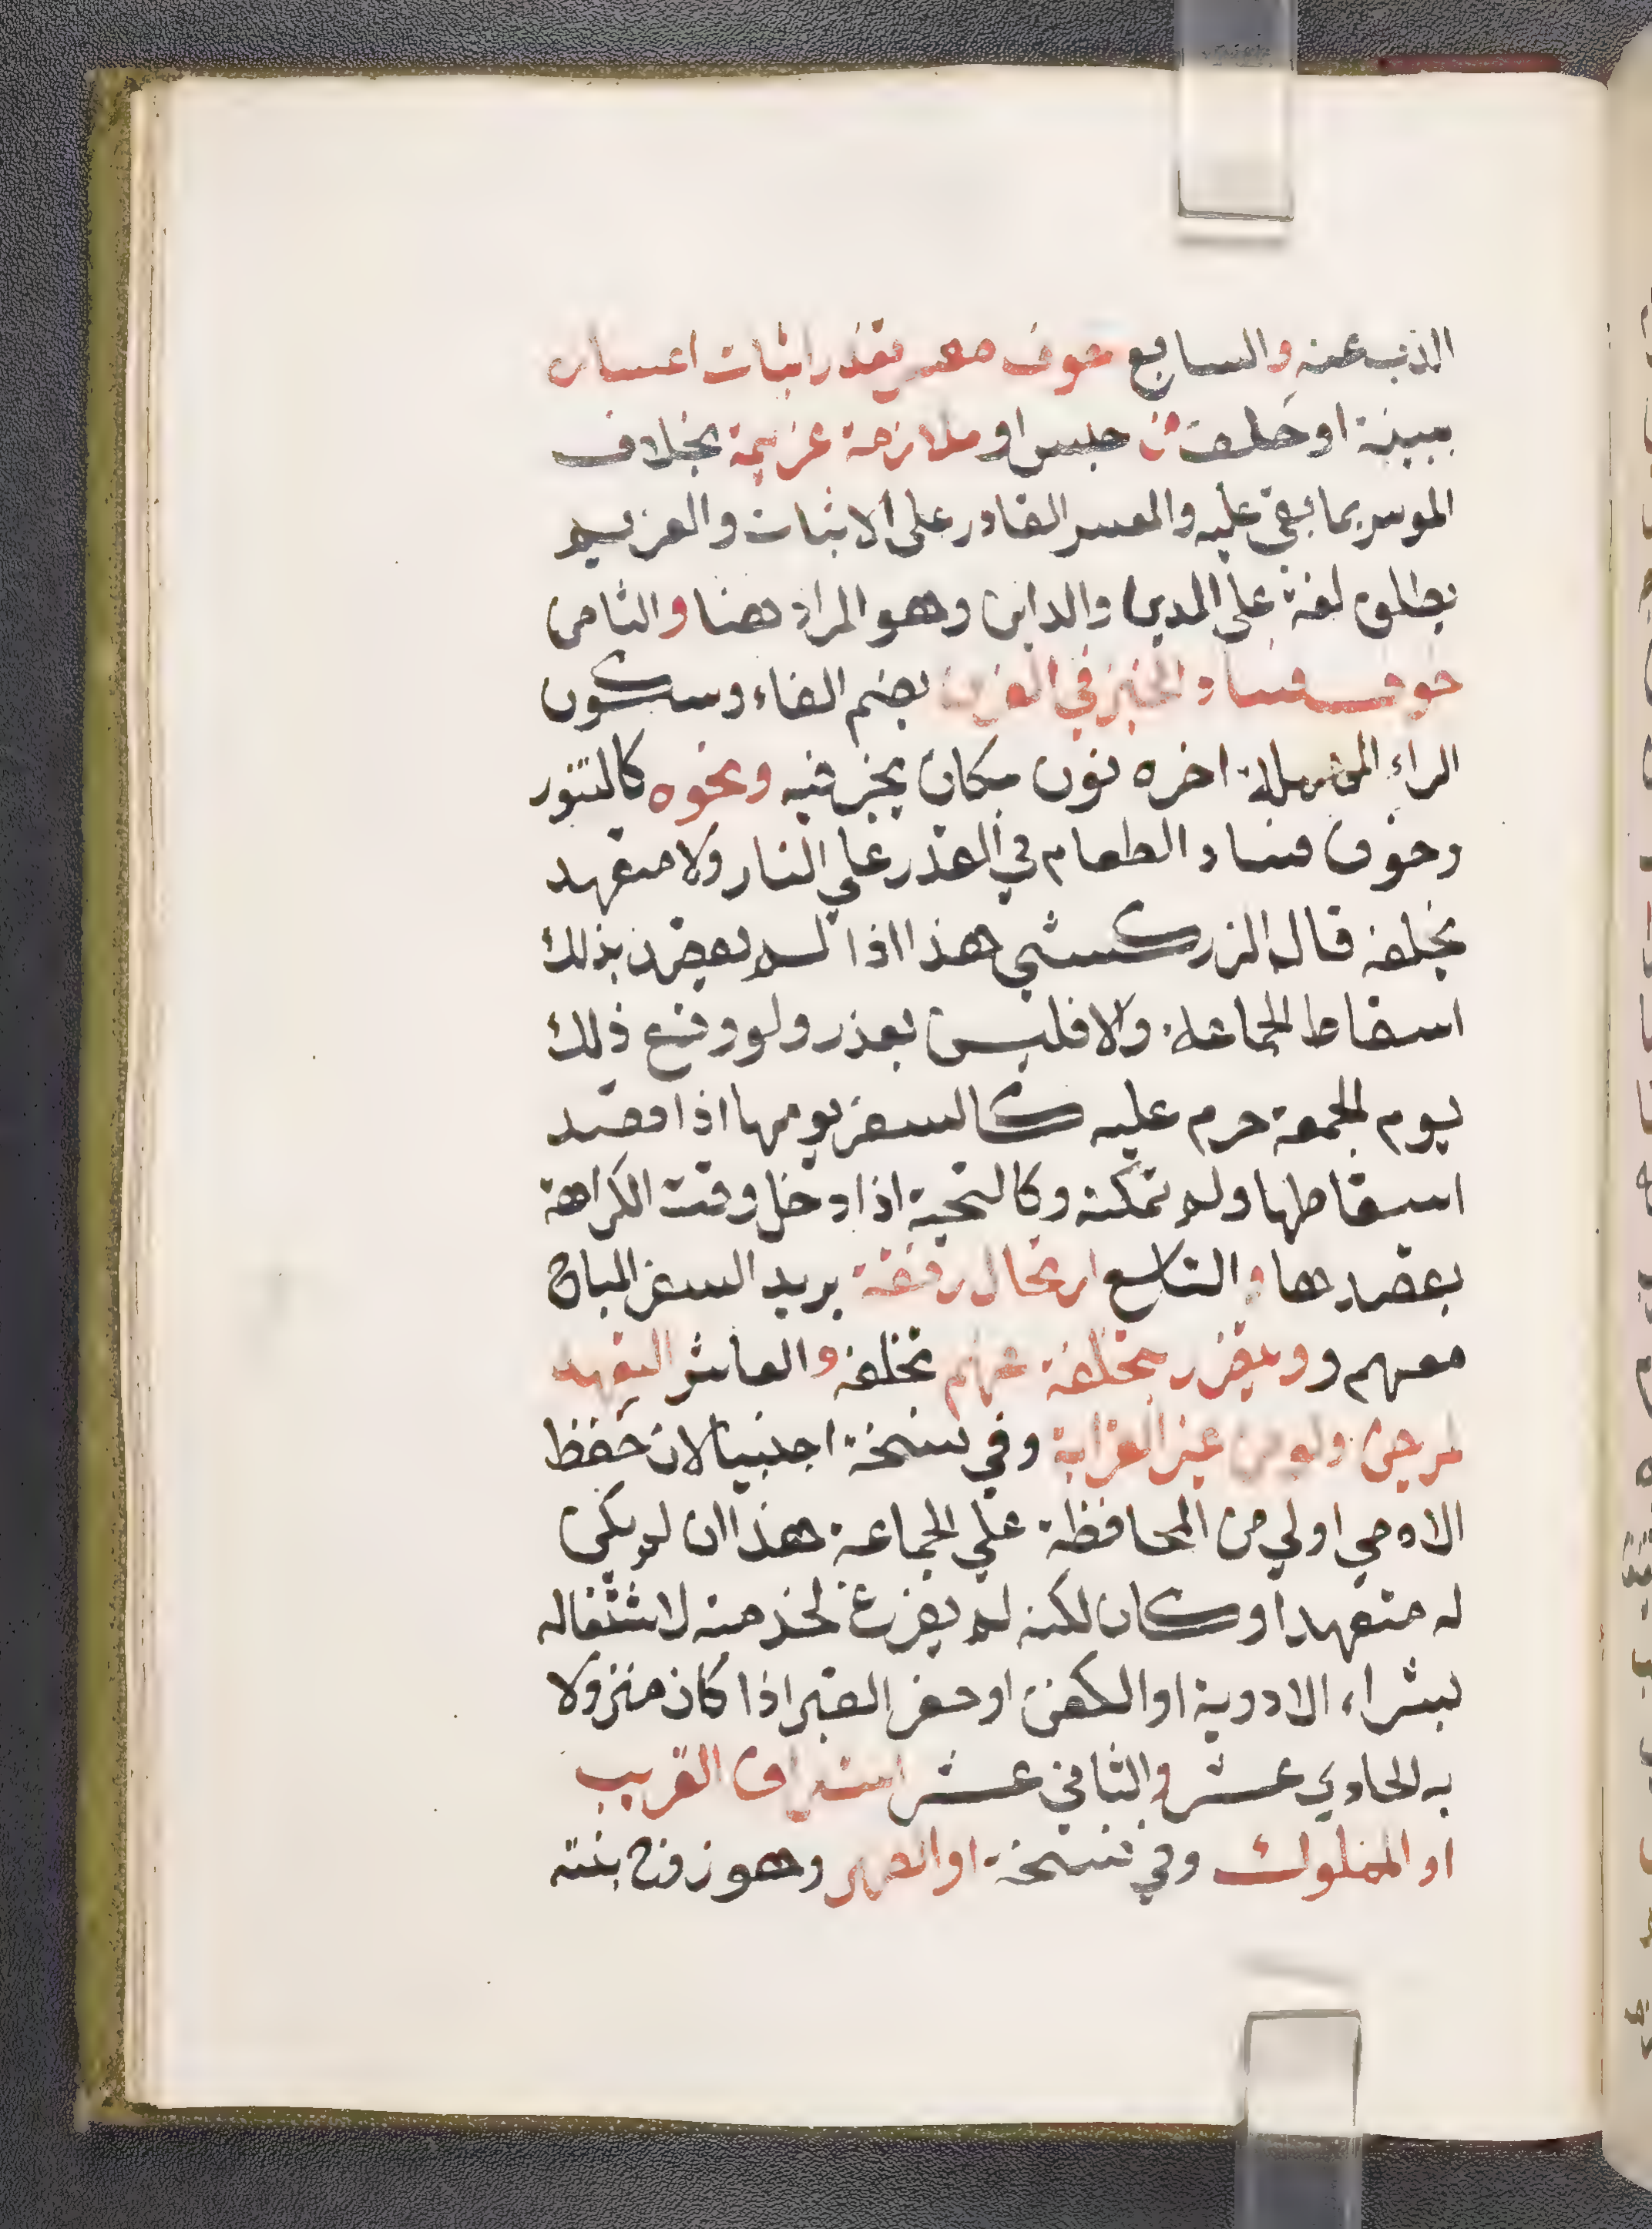 الذب عنه والسابع خوف معسر تعذر اثبات اعساره
ببينة او حلف من حبس او ملازمة غريمة بخلاف
الموسر بما بقي عليه والمعسر القادر على الاثبات والغريم
يطلق لغة على المدين والداين وهو المراد هنا والثامن
خوف فساد الخبز في الفرن بضم الفاء وسكون
الراء المهملة اخره نون مكان يخبز فيه ونحوه كالتنور
وخوف فساد الطعام في القدر على النار ولا متعهد
يخلفه قال الزركشي هذا اذا لم يقصد بذلك
اسقاط الجماعة والا فليس بعذر ولو وقع ذلك
يوم الجمعة حرم عليه كالسفر يومها اذا قصد
اسقاطها ولم تمكنه وكالتحية اذا دخل وقت الكراهة
بقصدها والتاسع ارتحال رفقة يريد السفر المباح
معهم و ويتضرر بتخلفه عنهم تخلفه والعاشر التعهد
لمريض ولو من غير القرابة وفي نسخة اجنبيا لان حفظ
الادمي اولي من المحافظة علي الجماعة هذا ان لم يكن
له متعهد او كان لكنه لم يفرغ لخدمته لاشتغاله
بشراء الادوية او الكفن او حفر القبر اذا كان منزولا
به الحادي عشر والثاني عشر اشراف القريب
او المملوك وفي نسخة او الصهر وهو زوج بنته